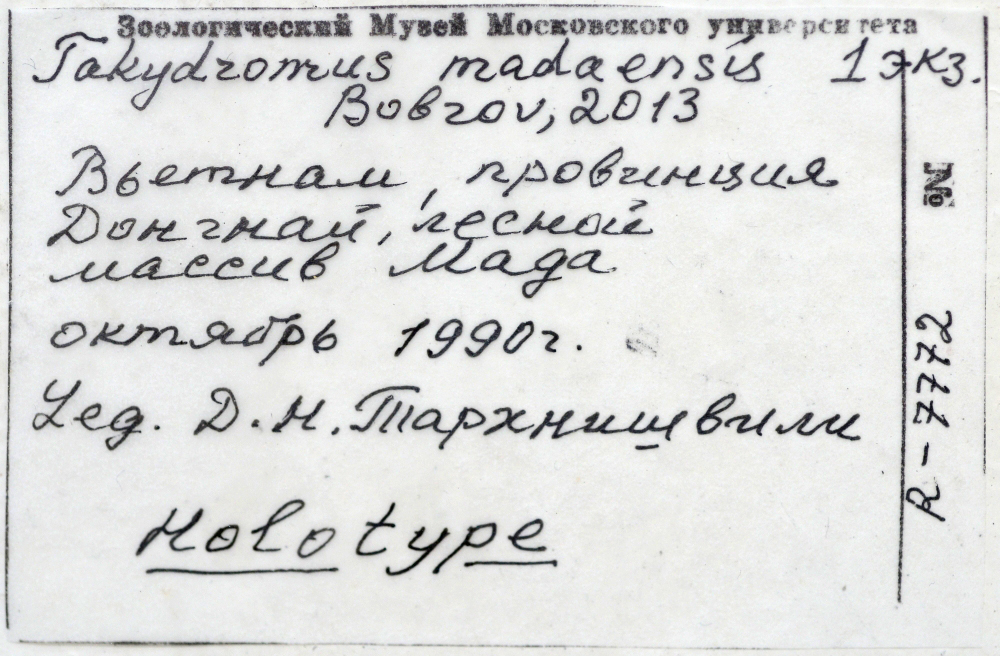 Зоологический Музей Московского университета
Takydromus madaensis 1 экз.
Bobrov, 2013
Вьетнам, провинция
Донгнай, лесной
массив Мада
октябрь 1990г.
Leg. Д.Н. Тархнишвили
Holotype
№ R-7772